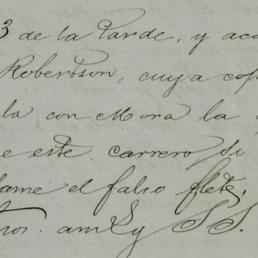 3 de la tarde, y aco
Robertson, cuya cop
la con Mora la
e este carrero si
lame el falso flete,
tros. am S y S. S.